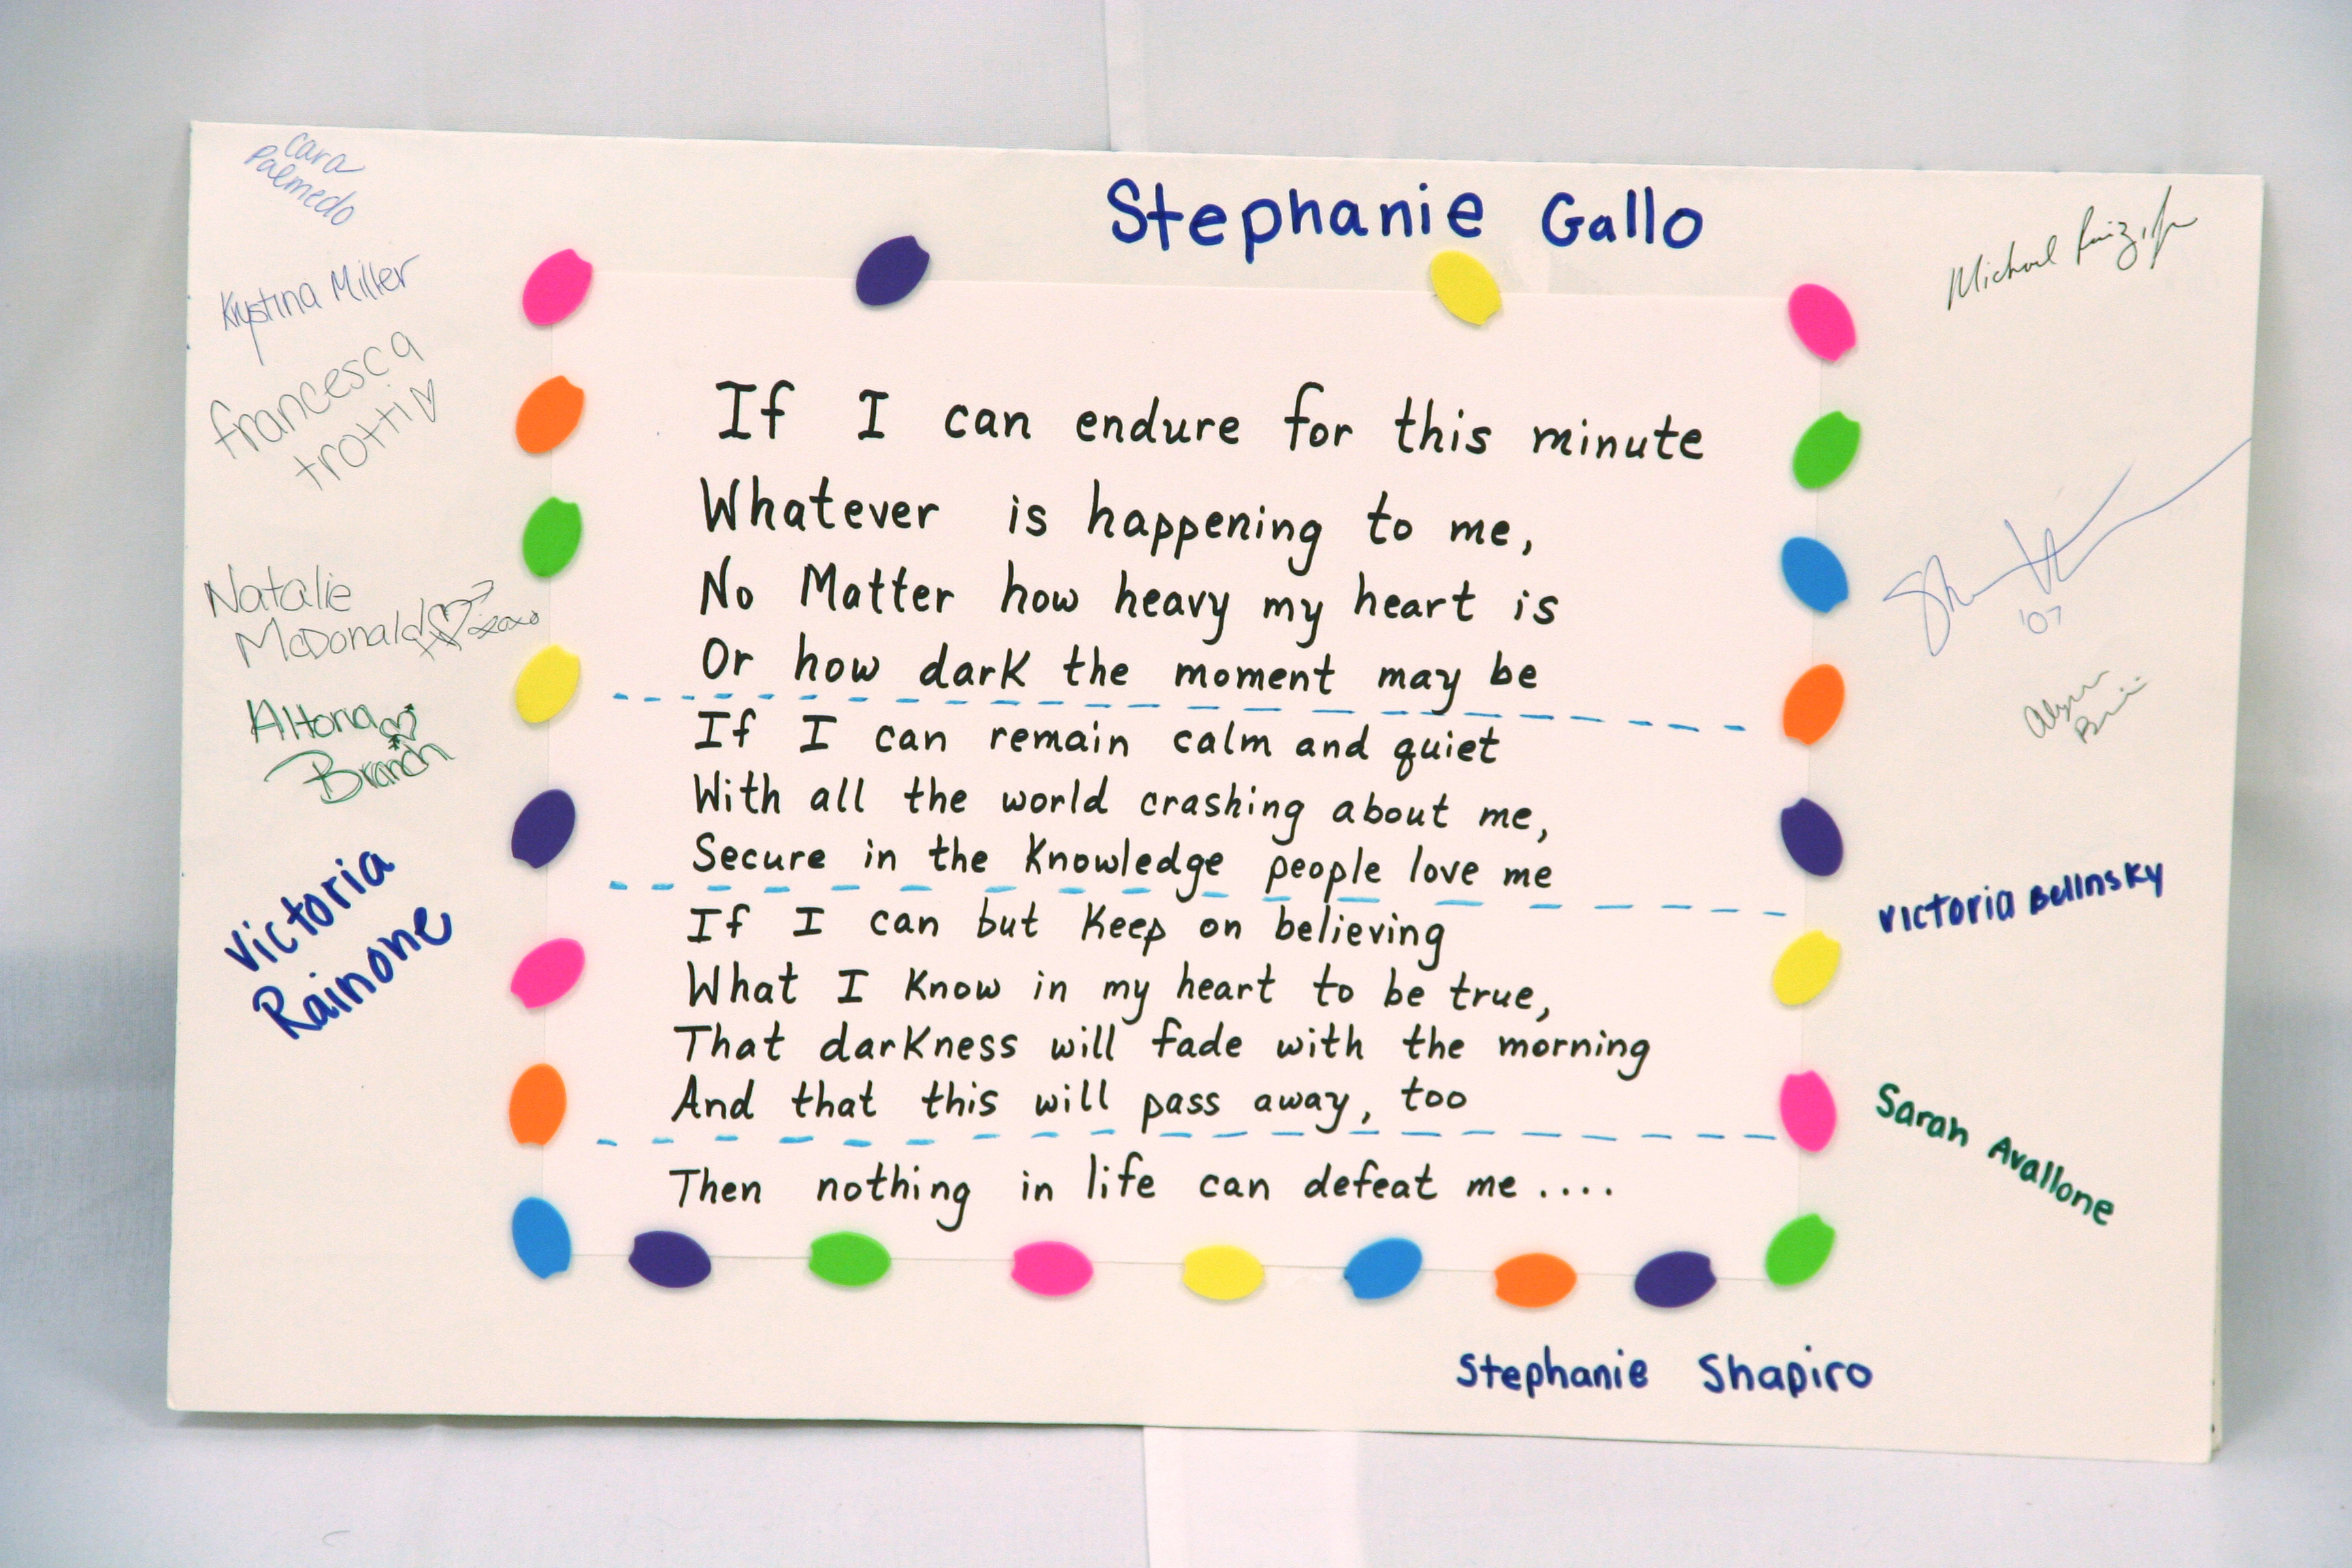 Cara
Palmedo
Krystina Miller
francesca
trotti
Natalie
McDonald xoxo
Altoria
Branch
Victoria
Rainone
Stephanie Gallo
If I can endure for this minute
Whatever is happening to me,
No Matter how heavy my heart is
Or how dark the moment may be
If I can remain calm and quiet
With all the world crashing about me,
Secure in the Knowledge people love me
If I can but Keep on believing
What I Know in my heart to be true,
That darKness will fade with the morning
And that this will pass away, too
Then nothing in life can defeat me....
Michael Ruiz, Jr
'07
Victoria Belinsky
Sarah Avallone
Stephanie Shapiro